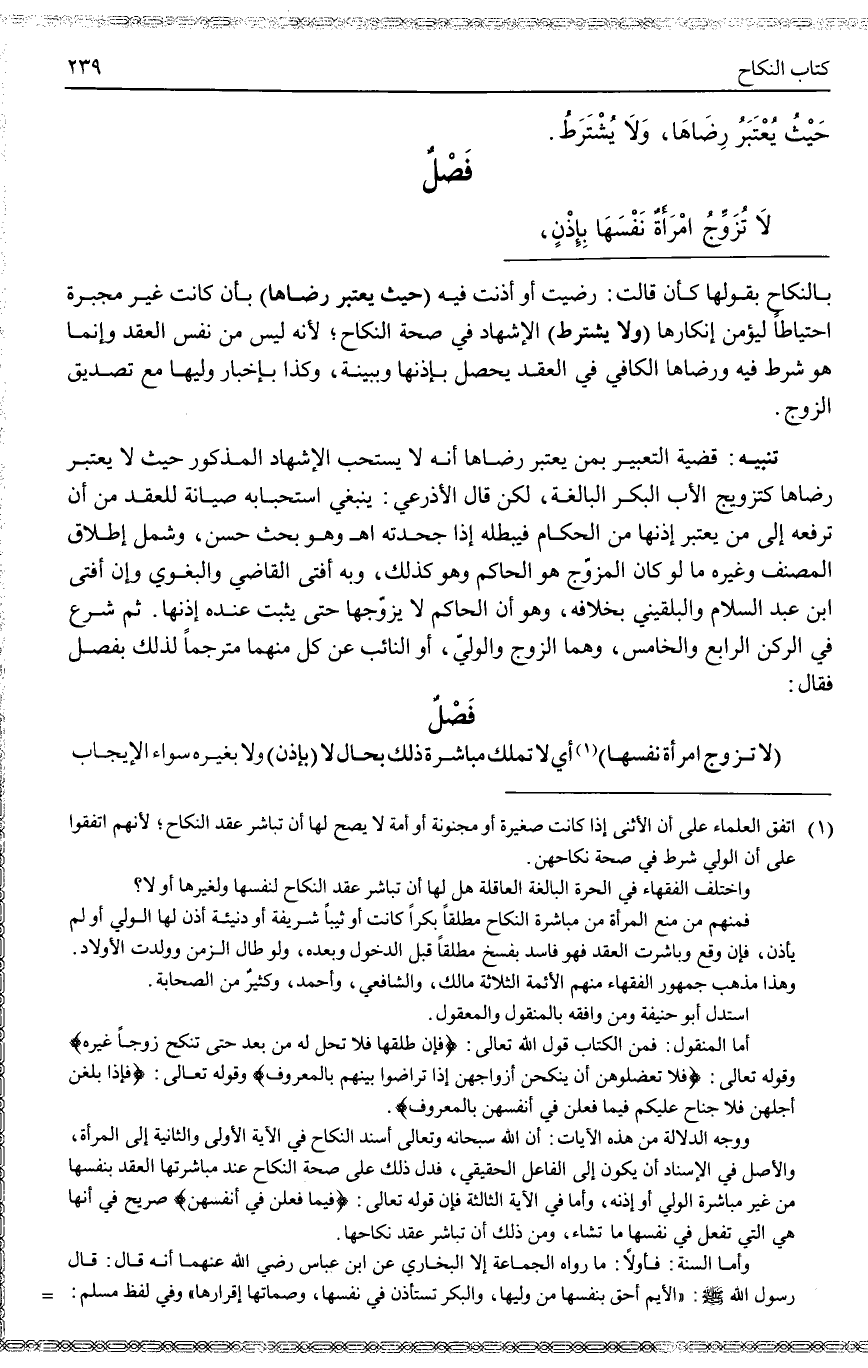 كتاب النكاح ٢٣٩
حَيْثُ يُعْتَبَرُ رِضَاهَا، وَلَا يُشْتَرَطُ.
فَصْلٌ
لَا تُزَوِّجُ امْرَأَةٌ نَفْسَهَا بِإِذْنٍ،
بالنكاح بقولها كأن قالت: رضيت أو أذنت فيه (حيث يعتبر رضاها) بأن كانت غير مجبرة
احتياطاً ليؤمن إنكارها (ولا يشترط) الإشهاد في صحة النكاح؛ لأنه ليس من نفس العقد وإنما
هو شرط فيه ورضاها الكافي في العقد يحصل بإذنها وببينة، وكذا بإخبار وليها مع تصديق
الزوج.
تنبيه: قضية التعبير بمن يعتبر رضاها أنه لا يستحب الإشهاد المذكور حيث لا يعتبر
رضاها كتزويج الأب البكر البالغة، لكن قال الأذرعي: ينبغي استحبابه صيانة للعقد من أن
ترفعه إلى من يعتبر إذنها من الحكام فيبطله إذا جحدته اهـ وهو بحث حسن، وشمل إطلاق
المصنف وغيره ما لو كان المزوّج هو الحاكم وهو كذلك، وبه أفتى القاضي والبغوي وإن أفتى
ابن عبد السلام والبلقيني بخلافه، وهو أن الحاكم لا يزوّجها حتى يثبت عنده إذنها. ثم شرع
في الركن الرابع والخامس، وهما الزوج والوليّ، أو النائب عن كل منهما مترجماً لذلك بفصل
فقال:
فَصْلٌ
(لا تزوج امرأة نفسها)(١) أي لا تملك مباشرة ذلك بحال لا (بإذن) ولا بغيره سواء الإيجاب
(١) اتفق العلماء على أن الأثنى إذا كانت صغيرة أو مجنونة أو أمة لا يصح لها أن تباشر عقد النكاح؛ لأنهم اتفقوا
على أن الولي شرط في صحة نكاحهن.
واختلف الفقهاء في الحرة البالغة العاقلة هل لها أن تباشر عقد النكاح لنفسها ولغيرها أو لا؟
فمنهم من منع المرأة من مباشرة النكاح مطلقاً بكراً كانت أو ثيباً شريفة أو دنيئة أذن لها الولي أو لم
يأذن، فإن وقع وباشرت العقد فهو فاسد بفسخ مطلقاً قبل الدخول وبعده، ولو طال الزمن وولدت الأولاد.
وهذا مذهب جمهور الفقهاء منهم الأئمة الثلاثة مالك، والشافعي، وأحمد، وكثيرٌ من الصحابة.
استدل أبو حنيفة ومن وافقه بالمنقول والمعقول.
أما المنقول: فمن الكتاب قول الله تعالى: ﴿فإن طلقها فلا تحل له من بعد حتى تنكح زوجاً غيره﴾
وقوله تعالى: ﴿فلا تعضلوهن أن ينكحن أزواجهن إذا تراضوا بينهم بالمعروف﴾ وقوله تعالى: ﴿فإذا بلغن
أجلهن فلا جناح عليكم فيما فعلن في أنفسهن بالمعروف﴾.
ووجه الدلالة من هذه الآيات: أن الله سبحانه وتعالى أسند النكاح في الآية الأولى والثانية إلى المرأة،
والأصل في الإسناد أن يكون إلى الفاعل الحقيقي، فدل ذلك على صحة النكاح عند مباشرتها العقد بنفسها
من غير مباشرة الولي أو إذنه، وأما في الآية الثالثة فإن قوله تعالى: ﴿فيما فعلن في أنفسهن﴾ صريح في أنها
هي التي تفعل في نفسها ما تشاء، ومن ذلك أن تباشر عقد نكاحها.
وأما السنة: فأولًا: ما رواه الجماعة إلا البخاري عن ابن عباس رضي الله عنهما أنه قال: قال
رسول الله ﷺ: «الأيم أحق بنفسها من وليها، والبكر تستأذن في نفسها، وصماتها إقرارها» وفي لفظ مسلم: =